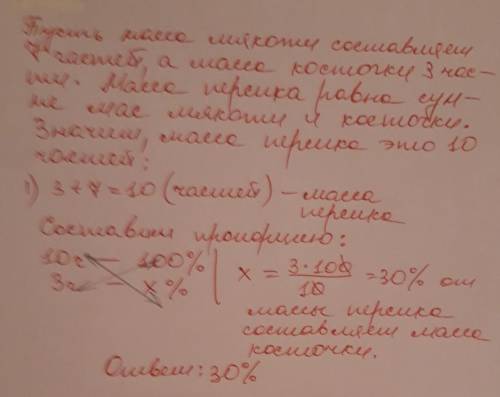 Пусть масса мякоти составляет
7 частей, а масса косточки 3 час-
ти. Масса персика равна сум-
ме мас мякоти и косточки.
Значит, масса персика это 10
частей:
1) 3 + 7 = 10 (частей) – масса
персика
Составим пропорцию:
10г – 100%
3г – x%
x = 3·100/10 = 30% от
массы персика
составляет масса
косточки.
Ответ: 30%